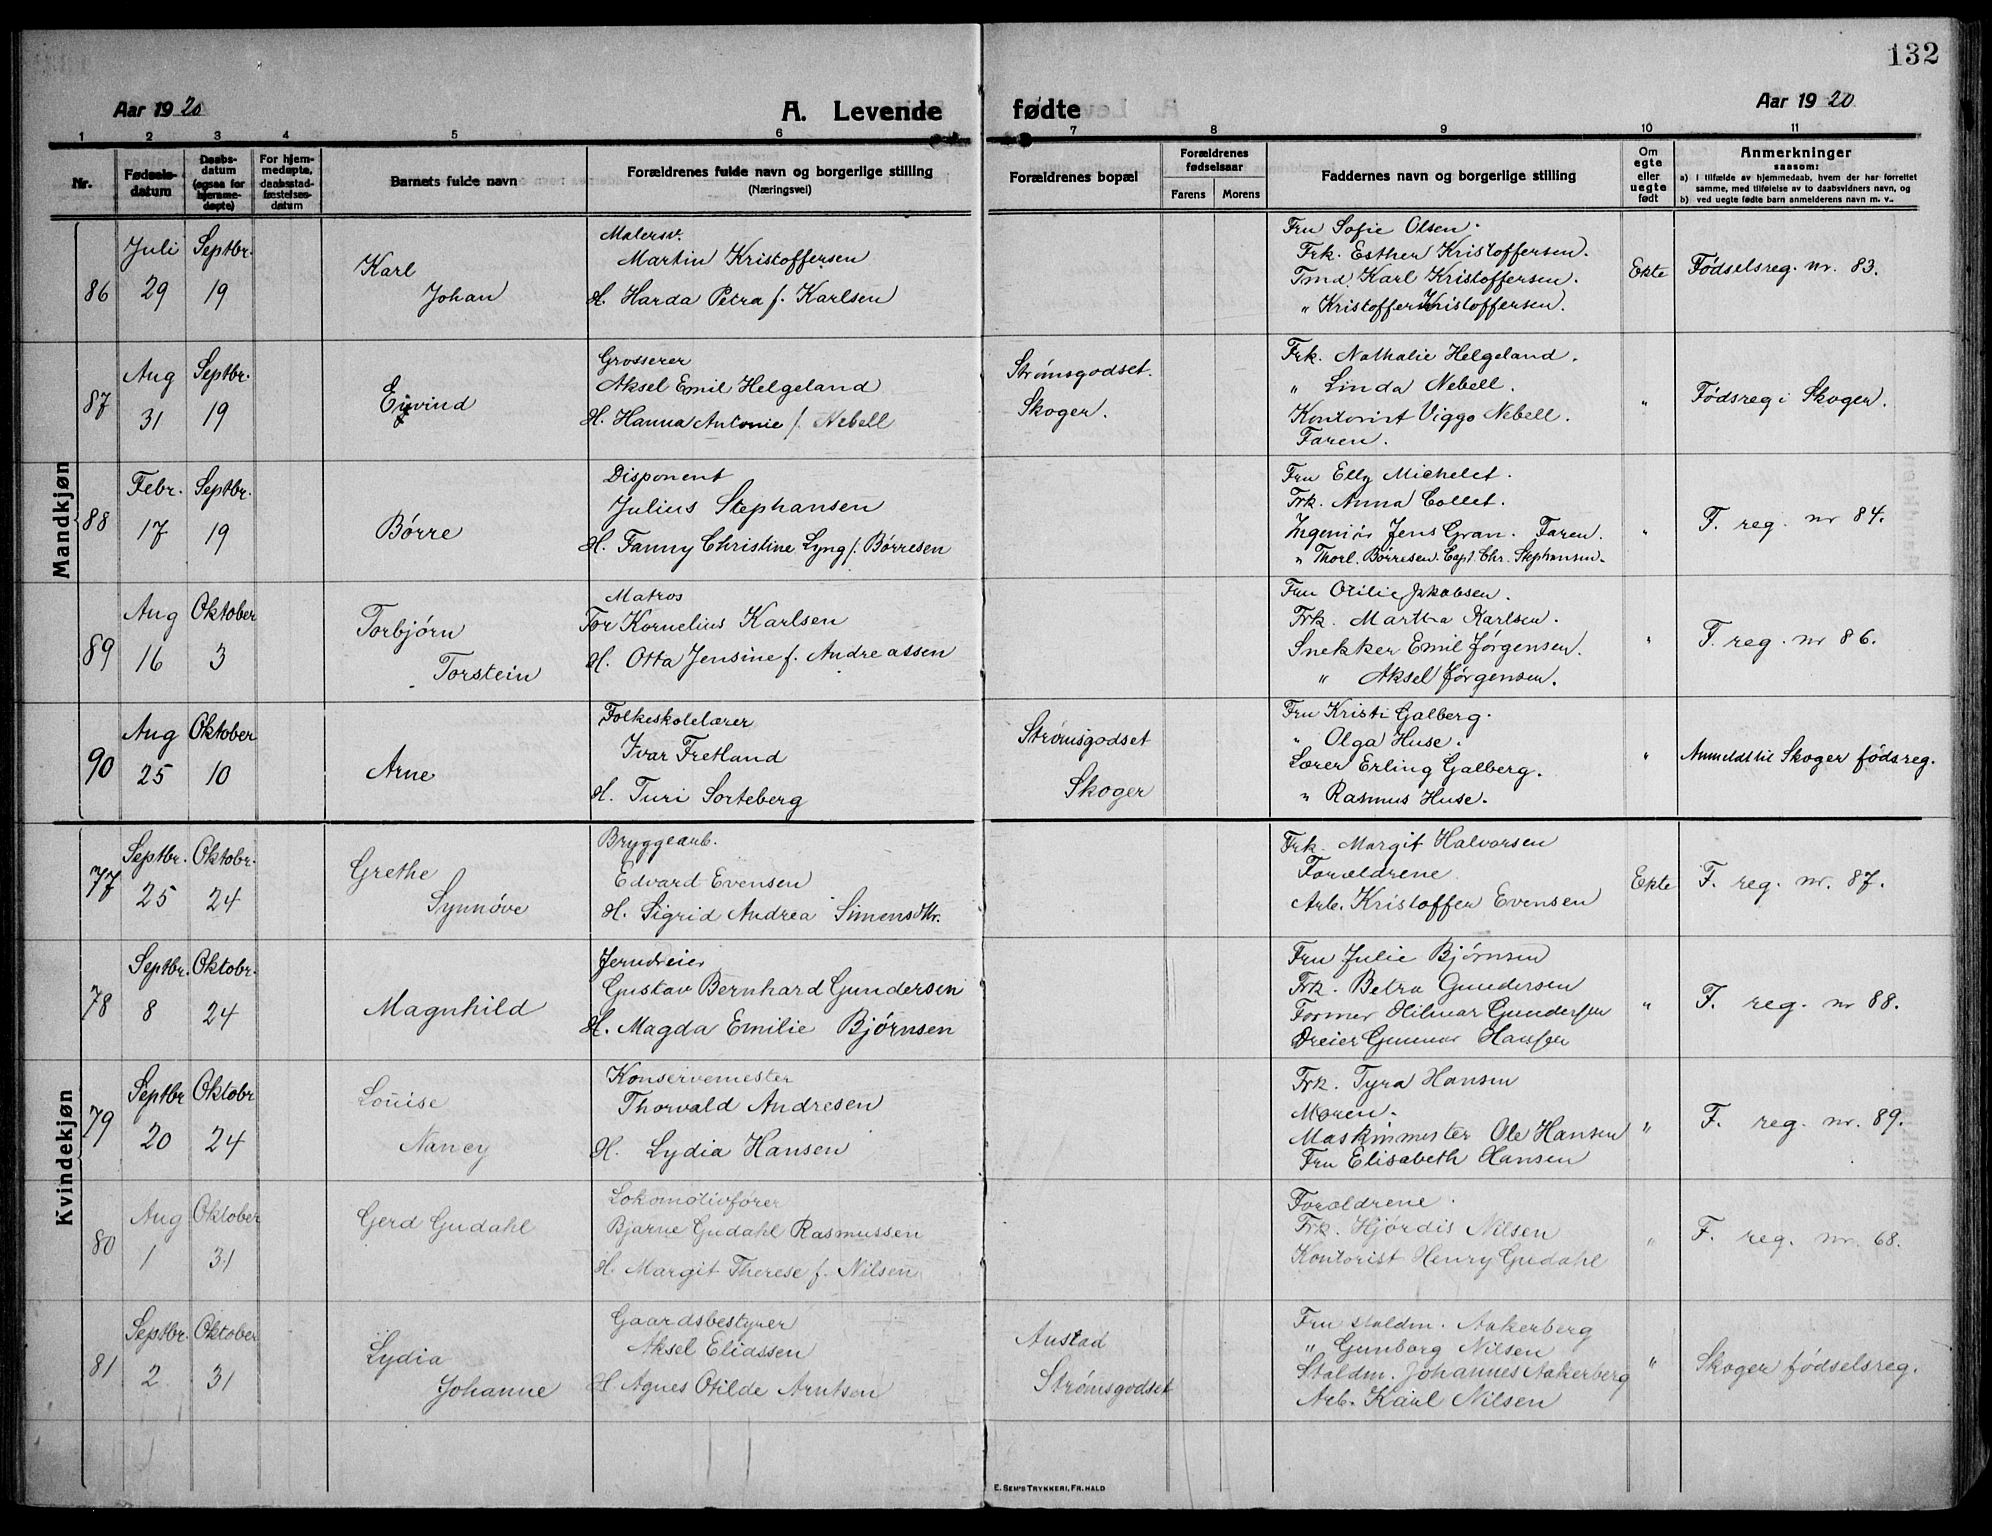 132
Aar 1920 A. Levende fødte Aar 1920
1 2 3 4 5 6 7 8 9 10 11
Nr.
Fødsels-
datum
Daabs-
datum
(ogsaa for
hjemme-
døpte)
For hjem-
medøpte,
daabsstad-
fæstelses-
datum
Barnets fulde navn
Forældrenes fulde navn og borgerlige stilling
(Næringsvei)
Forældrenes bopæl
Forældrenes
fødselsaar
Farens Morens
Faddernes navn og borgerlige stilling
Om
egte
eller
uegte
født
Anmerkninger
saasom:
a) I tilfælde av hjemmedaab, hvem der har forrettet
samme, med tilføielse av to daabsvidners navn, og
b) ved uegte fødte barn anmelderens navn m. v..
Mandkjøn
86
Juli
29
Septbr.
19
Karl
Johan
Malersv.
Martin Kristoffersen
H. Harda Petra f. Karlsen
Fru Sofie Olsen.
Frk. Esther Kristoffersen.
Tmd. Karl Kristoffersen.
" Kristoffer Kristoffersen.
Ekte
Fødselsreg. nr. 83.
87
Aug
31
Septbr.
19
Eivind
Grosserer
Aksel Emil Helgeland
H. Hanna Antonie f. Nebell
Strømsgodset.
Skoger.
Frk. Nathalie Helgeland.
" Linda Nebell.
Kontorist Viggo Nebell.
Faren.
"
Fødsreg i Skoger.
88
Febr.
17
Septbr.
19
Børre
Disponent
Julius Stephansen
H. Fanny Christine Lyng f. Børresen
Fru Elly Michelet.
Frk. Anna Collet.
Ingeniør Jens Gran. Faren.
" Thorl. Børresen. Capt. Chr. Stephansen.
"
F. reg. nr 84.
89
Aug
16
Oktober
3
Torbjørn
Torstein
Matros
Tor Kornelius Karlsen
H. Otta Jensine f. Andreassen
Fru Otilie Jakobsen.
Frk. Martha Karlsen.
Snekker Emil Jørgensen.
" Aksel Jørgensen.
"
F. reg. nr 86.
90
Aug
25
Oktober
10
Arne
Folkeskolelærer
Ivar Fretland
H. Turi Sorteberg
Strømsgodset
Skoger
Fru Kristi Galberg.
" Olga Huse.
Lærer Erling Galberg.
" Rasmus Huse.
"
Anmeldt til Skoger fødsreg.
Kvindekjøn
77
Septbr.
25
Oktobr.
24
Grethe
Synnøve
Bryggearb.
Edvard Evensen
H. Sigrid Andrea Simensdtr.
Frk. Margit Halvorsen
Forældrene
Arb. Kristoffer Evensen
Ekte
F. reg. nr. 87.
78
Septbr.
8
Oktobr.
24
Magnhild
Jerndreier
Gustav Bernhard Gundersen
H. Magda Emilie Bjørnsen
Fru Julie Bjørnsen
Frk. Betra Gundersen
Former Hilmar Gundersen
Dreier Gunnar Hansen
"
F. reg. nr 88.
79
Septbr
20
Oktobr
24
Louise
Nancy
Konservemester
Thorvald Andresen
H. Lydia Hansen
Frk. Tyra Hansen
Moren.
Maskinmester Ole Hansen
Fru Elisabeth Hansen
"
F. reg. nr. 89.
80
Aug
1
Oktober
31
Gerd Gudahl
Lokomotivfører
Bjarne Gudahl Rasmussen
H. Margit Therese f. Nilsen
Forældrene.
Frk. Hjørdis Nilsen
Kontorist Henry Gudahl
"
F. reg. nr. 68.
81
Septbr.
2
Oktober
31
Lydia
Johanne
Gaardsbestyrer
Aksel Eliassen
H Agnes Otilde Arntsen
Austad
Strømsgodset
Fru staldm. Aakerberg
" Gunborg Nilsen
Staldm. Johannes Aakerberg
Arb. Karl Nilsen
"
Skoger fødselsreg.
E. SEM'S TRYKKERI, FR. HALD